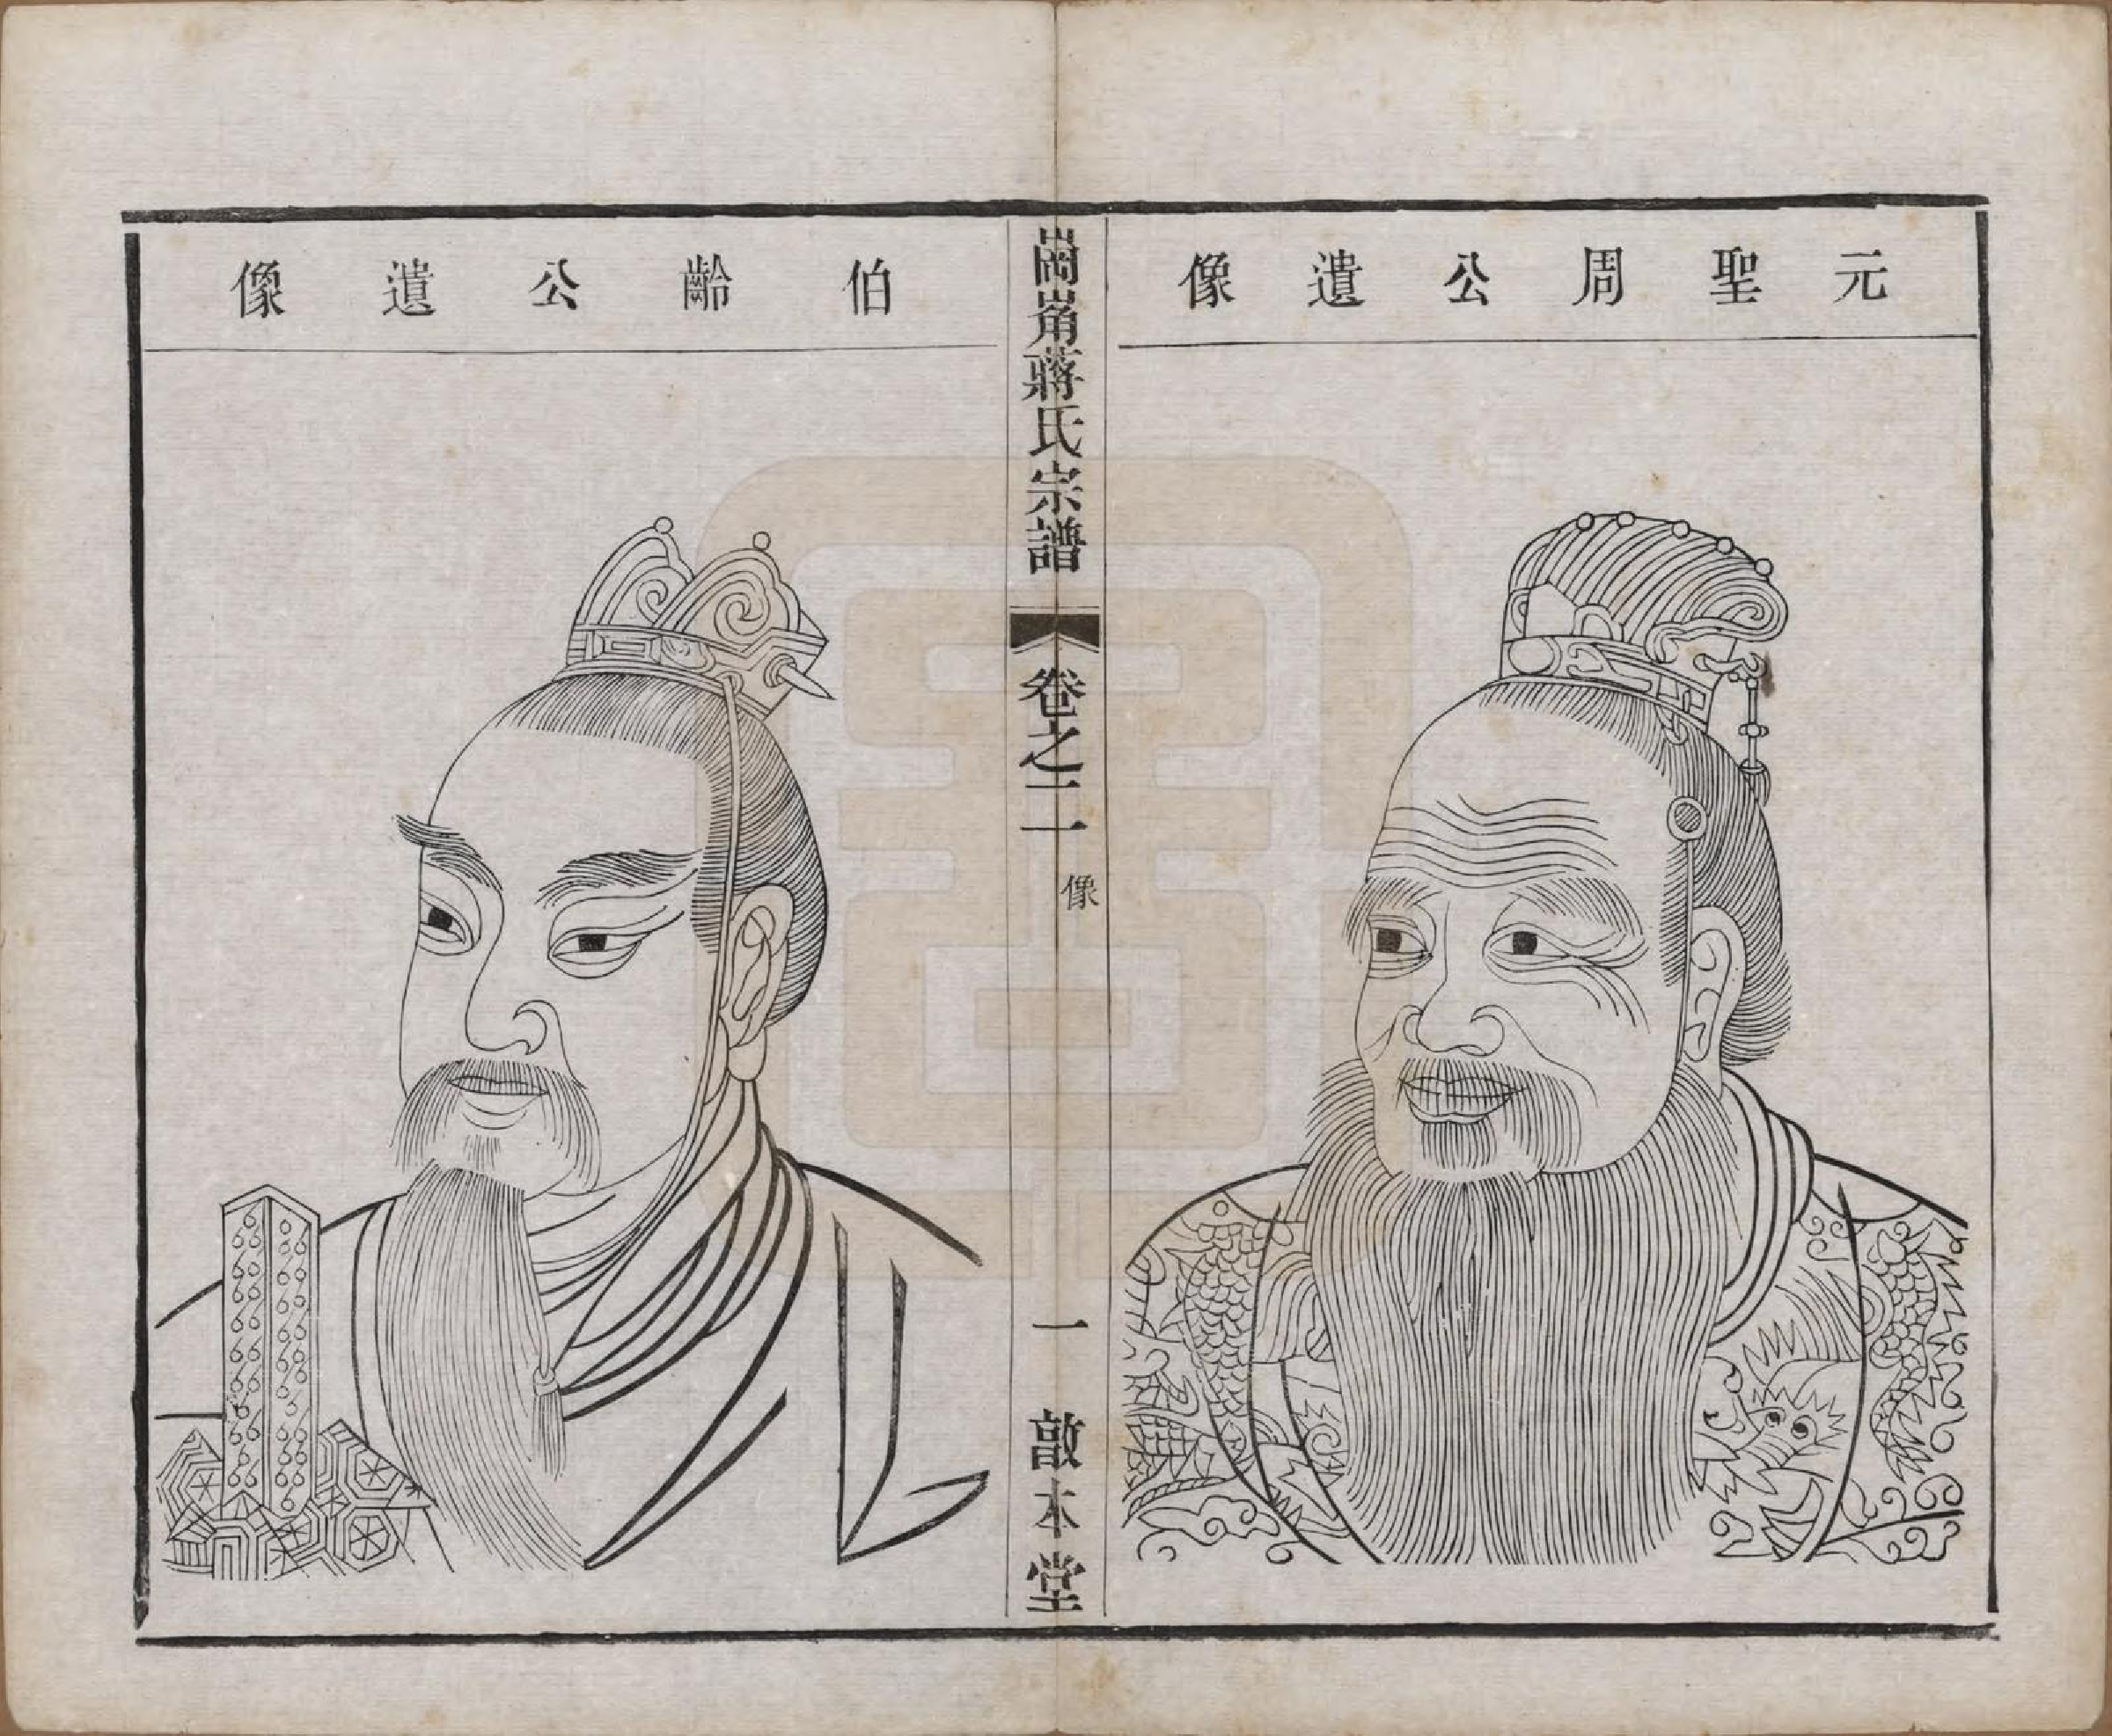 元聖周公遺像
崗蔣氏宗譜
卷之二
像
一
敦本堂
伯齡公遺像